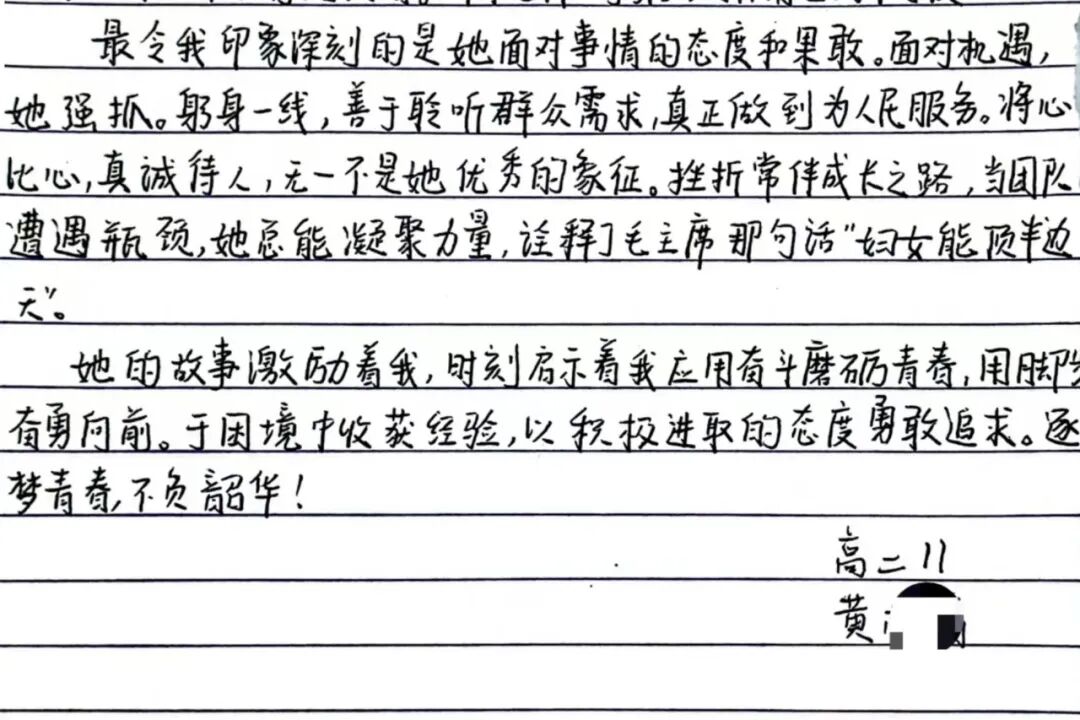 最令我印象深刻的是她面对事情的态度和果敢。面对机遇，
她强抓。躬身一线，善于聆听群众需求，真正做到为人民服务。将心
比心，真诚待人，无一不是她优秀的象征。挫折常伴成长之路，当团队
遭遇瓶颈，她总能凝聚力量，诠释了毛主席那句话“妇女能顶半边
天”。
她的故事激励着我，时刻启示着我应用奋斗磨砺青春，用脚步
奋勇向前。于困境中收获经验，以积极进取的态度勇敢追求。逐
梦青春，不负韶华！
高二11
黄